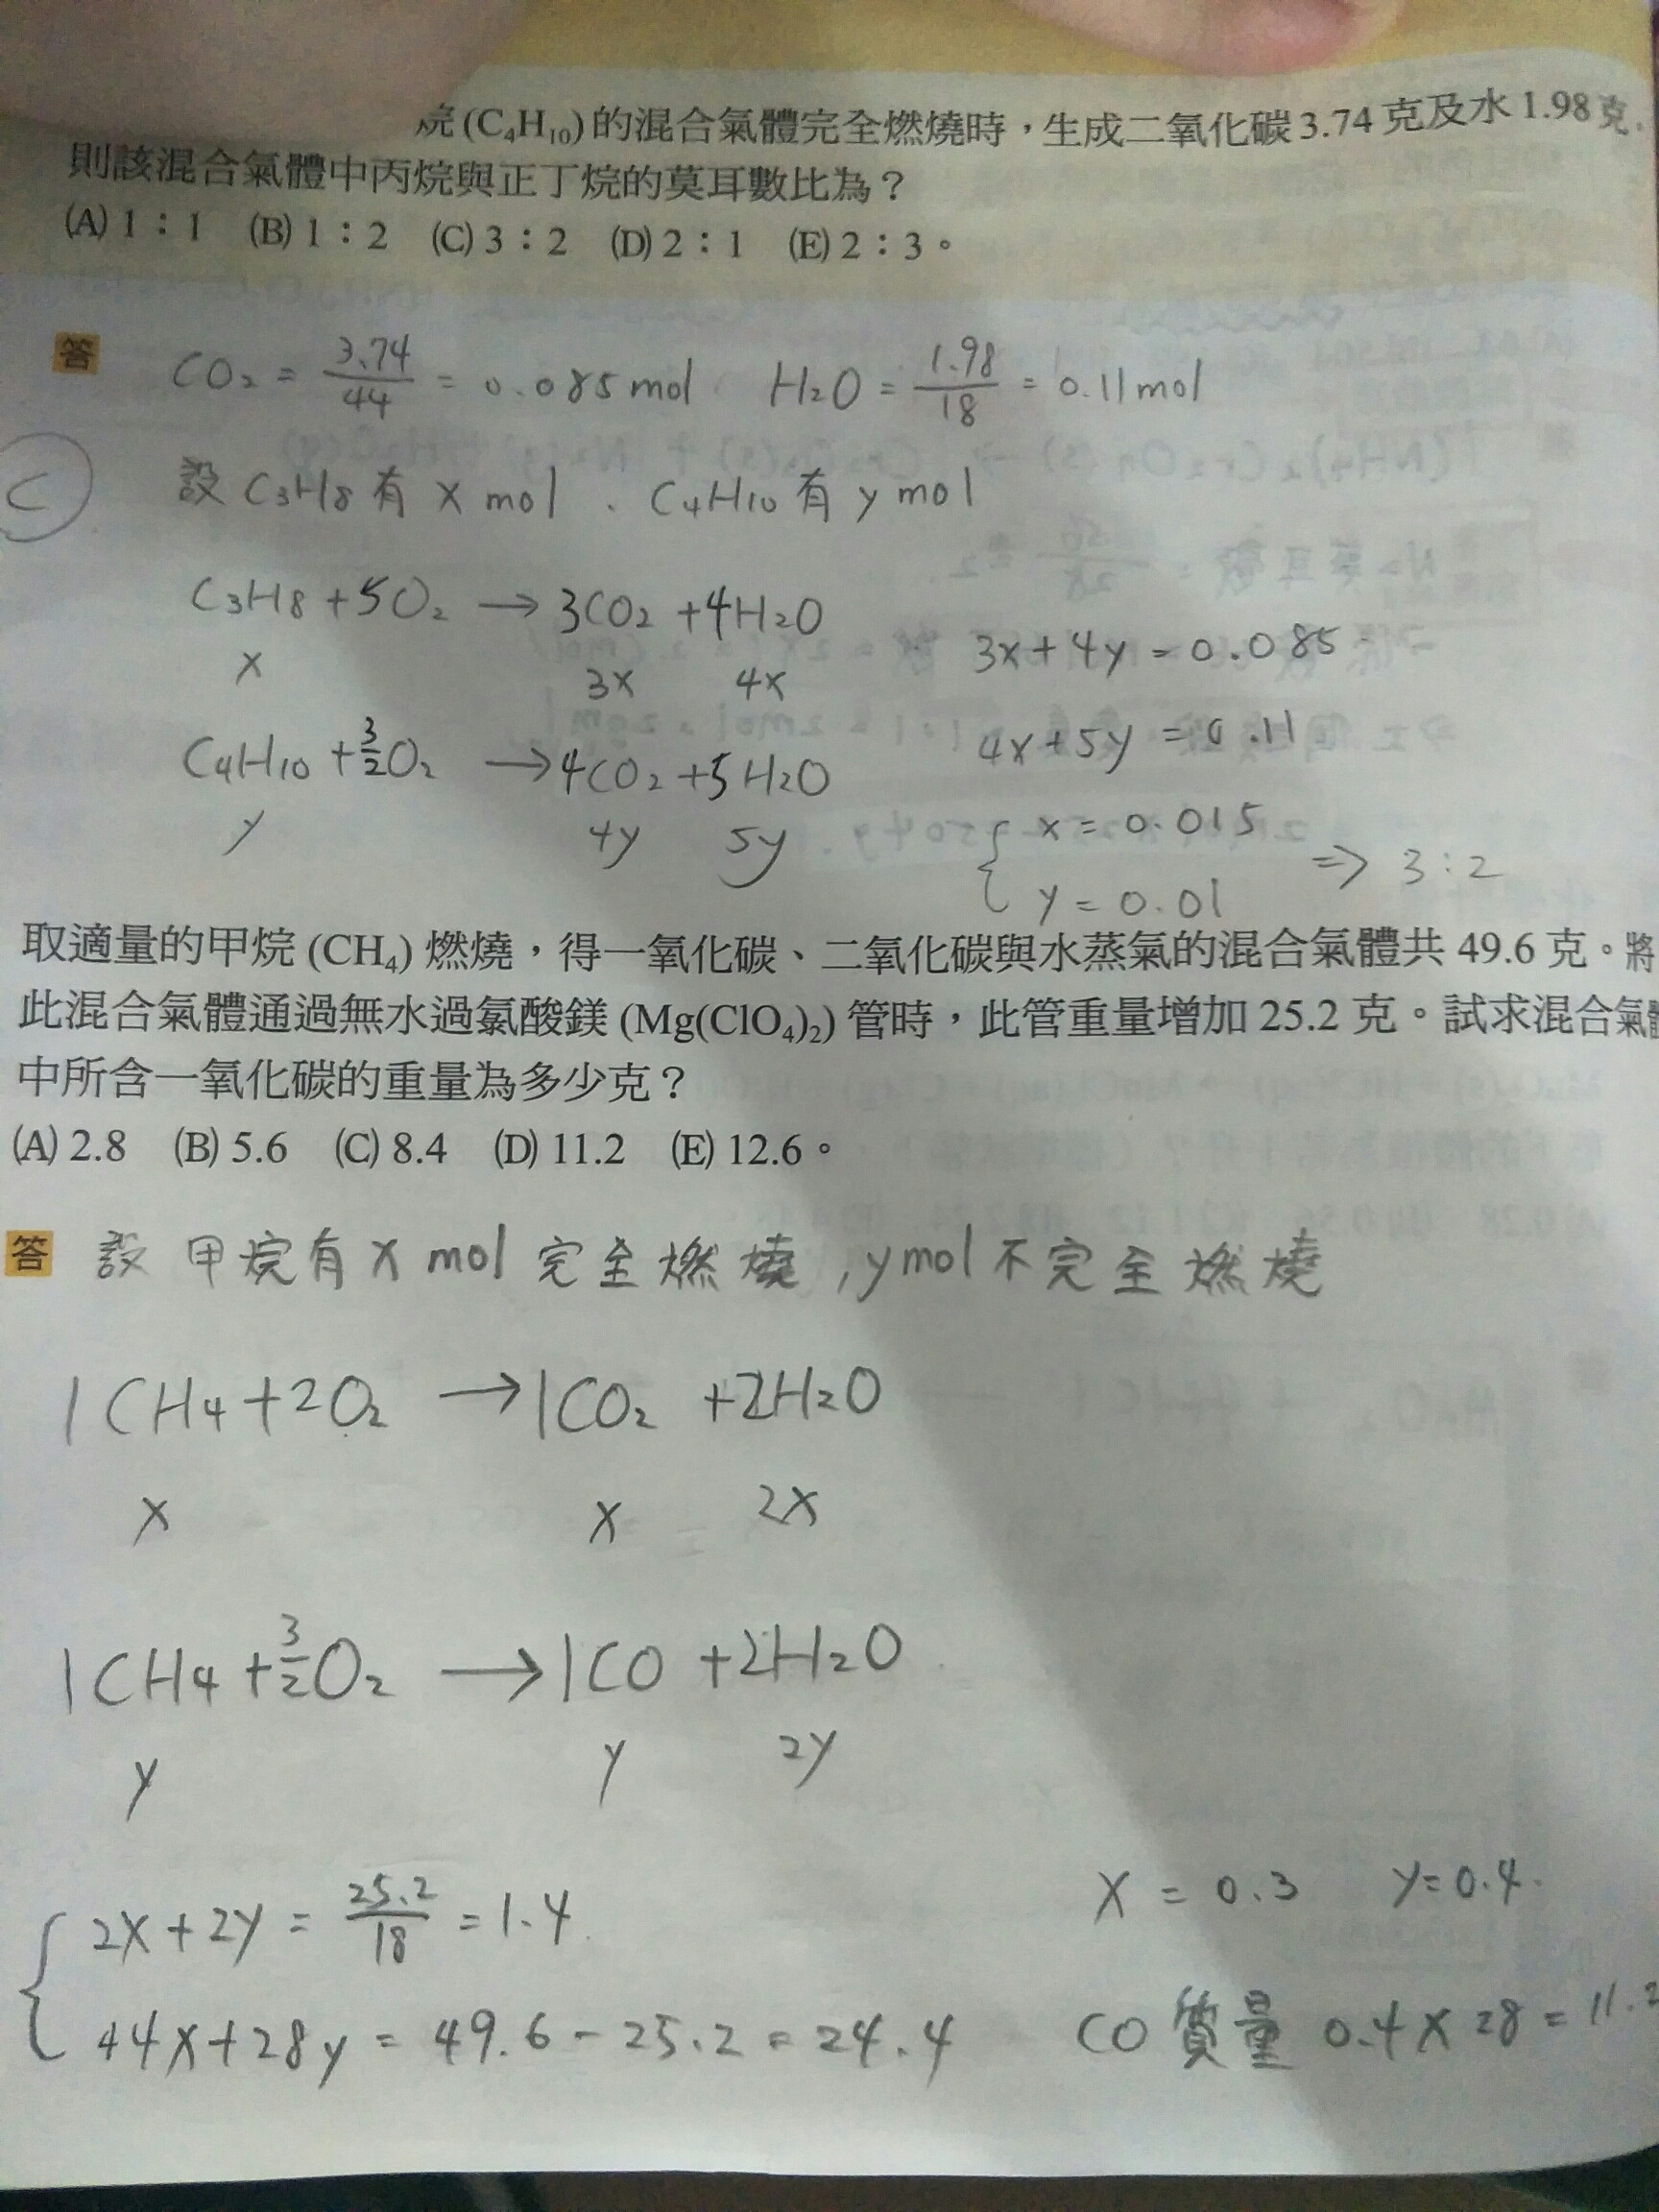 烷 (C₄H₁₀) 的混合氣體完全燃燒時，生成二氧化碳 3.74 克及水 1.98 克，
則該混合氣體中丙烷與正丁烷的莫耳數比為？
(A) 1：1 (B) 1：2 (C) 3：2 (D) 2：1 (E) 2：3。
答 CO₂ = 3.74/44 = 0.085 mol H₂O = 1.98/18 = 0.11 mol
C
設 C₃H₈ 有 x mol、C₄H₁₀ 有 y mol
C₃H₈ + 5O₂ → 3CO₂ + 4H₂O
x 3x 4x
3x + 4y = 0.085
C₄H₁₀ + 3/2 O₂ → 4CO₂ + 5H₂O
y 4y 5y
4x + 5y = 0.11
{ x = 0.015
y = 0.01
⇒ 3:2
取適量的甲烷 (CH₄) 燃燒，得一氧化碳、二氧化碳與水蒸氣的混合氣體共 49.6 克。將
此混合氣體通過無水過氯酸鎂 (Mg(ClO₄)₂) 管時，此管重量增加 25.2 克。試求混合氣體
中所含一氧化碳的重量為多少克？
(A) 2.8 (B) 5.6 (C) 8.4 (D) 11.2 (E) 12.6。
答 設 甲烷有 x mol 完全燃燒, y mol 不完全燃燒
1CH₄ + 2O₂ → 1CO₂ + 2H₂O
x x 2x
1CH₄ + 3/2 O₂ → 1CO + 2H₂O
y y 2y
{ 2x + 2y = 25.2/18 = 1.4
44x + 28y = 49.6 - 25.2 = 24.4
x = 0.3 y = 0.4
CO 質量 0.4 x 28 = 11.2